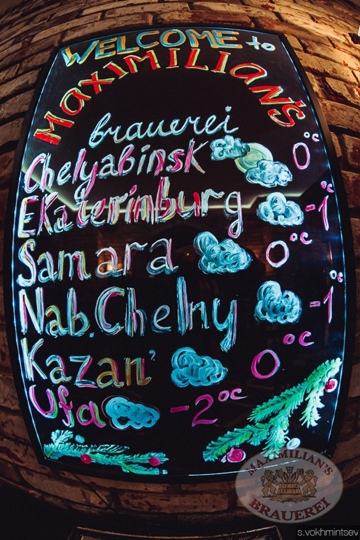 WELCOME to
MAXIMILIAN'S
brauerei
Chelyabinsk 0°C
Ekaterinburg -1°C
Samara 0°C
Nab.Chelny -1°C
Kazan' 0°C
Ufa -2°C
MAXIMILIAN'S
BRAUEREI
s.vokhmintsev